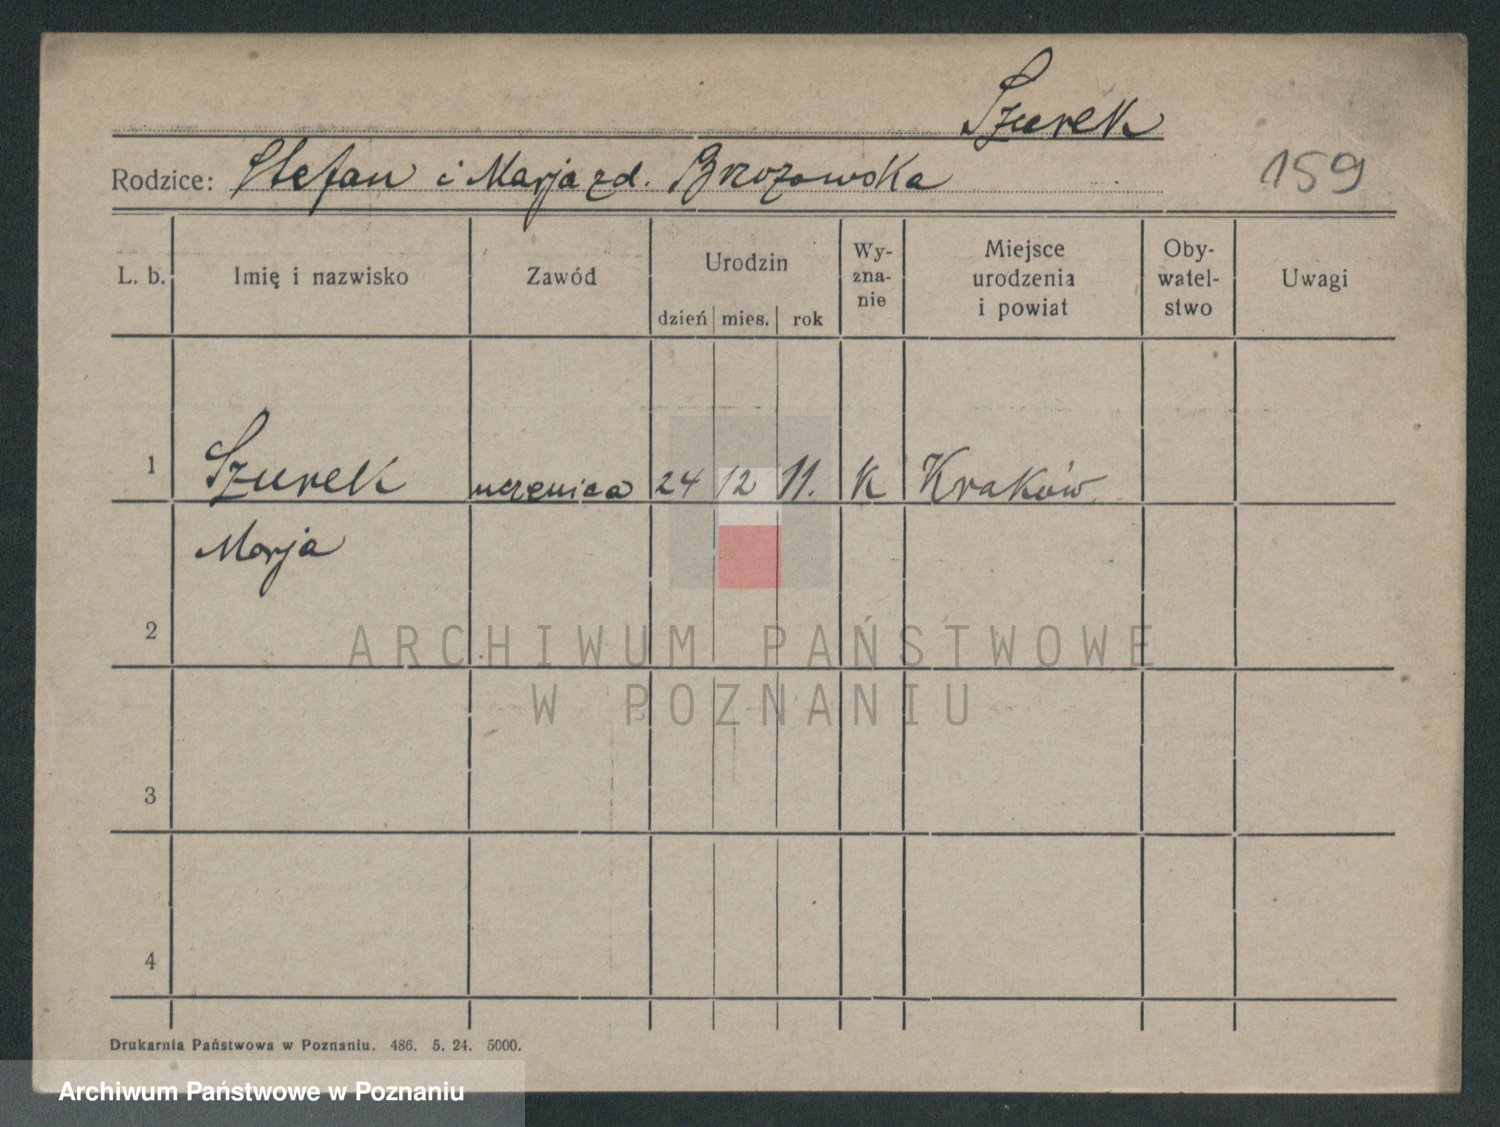 Szurek
Rodzice: Stefan i Marja zd. Brzozowska
159
L. b. Imię i nazwisko Zawód Urodzin dzień mies. rok Wy-zna-nie Miejsce urodzenia i powiat Oby-watel-stwo Uwagi
1 Szurek uczenica 24 12 11. K Kraków
Marja
2
ARCHIWUM PAŃSTWOWE
W POZNANIU
3
4
Drukarnia Państwowa w Poznaniu. 486. 5. 24. 5000.
Archiwum Państwowe w Poznaniu